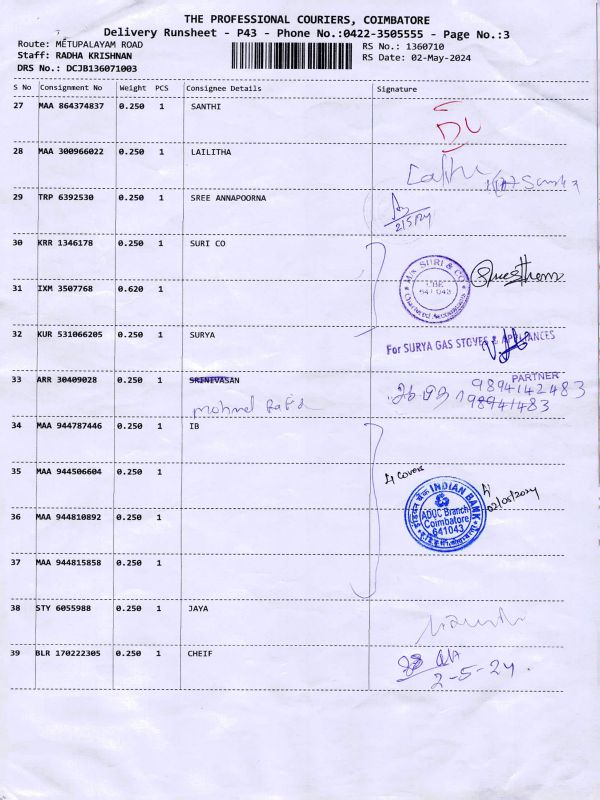 THE PROFESSIONAL COURIERS, COIMBATORE
Delivery Runsheet - P43 - Phone No.:0422-3505555 - Page No.:3
Route: METUPALAYAM ROAD RS No.: 1360710
Staff: RADHA KRISHNAN RS Date: 02-May-2024
DRS No.: DCJB136071003
S No Consignment No Weight PCS Consignee Details Signature
27 MAA 864374837 0.250 1 SANTHI
28 MAA 300966022 0.250 1 LAILITHA
29 TRP 6392530 0.250 1 SREE ANNAPOORNA
2/5/24
30 KRR 1346178 0.250 1 SURI CO
M/s. SURI & CO
CBE
641 043
Chartered Accountants
31 IXM 3507768 0.620 1
32 KUR 531066205 0.250 1 SURYA
For SURYA GAS STOVES & APPLIANCES
PARTNER
33 ARR 30409028 0.250 1 SRINIVASAN
9894142483
34 MAA 944787446 0.250 1 IB
35 MAA 944506604 0.250 1
4 Covers
02/05/2024
इंडियन बैंक INDIAN BANK
ADUC Branch
Coimbatore
641043
36 MAA 944810892 0.250 1
37 MAA 944815858 0.250 1
38 STY 6055988 0.250 1 JAYA
39 BLR 170222305 0.250 1 CHEIF
2-5-24.